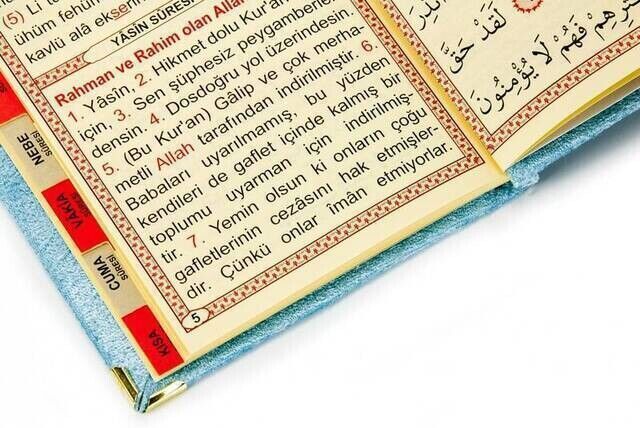 (5) Li
ühüm fehüm
kavlü alâ ekseri
YÂSİN SÛRESİ
Rahman ve Rahim olan Allah
1. Yâsîn, 2. Hikmet dolu Kur'an
için, 3. Sen şüphesiz peygamberler
densin. 4. Dosdoğru yol üzerindesin.
5. (Bu Kur'an) Gâlip ve çok merha-
metli Allah tarafından indirilmiştir. 6.
Babaları uyarılmamış, bu yüzden
kendileri de gaflet içinde kalmış bir
toplumu uyarman için indirilmiş-
tir. 7. Yemin olsun ki onların çoğu
gafletlerinin cezâsını hak etmişler-
dir. Çünkü onlar imân etmiyorlar.
5
NEBE
SÛRESİ
VÂKIA
SÛRESİ
CUMA
SÛRESİ
KISA
لَقَدْ حَقَّ
فَهُمْ لَا يُؤْمِنُونَ